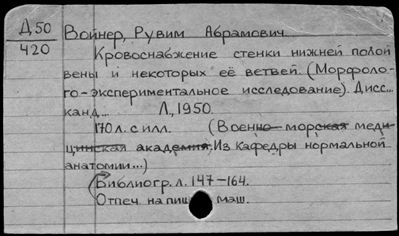 Д50
420
Войнер, Рувим Абрамович.
Кровоснабжение стенки нижней полой
вены и некоторых её ветвей. (Морфоло-
го-экспериментальное исследование). Дисс...
канд... Л., 1950.
170 л. с илл. (Военно-морская меди-
цинская академия. Из кафедры нормальной
анатомии...)
(Библиогр. л. 147-164.
Отпеч. на пиш. маш.